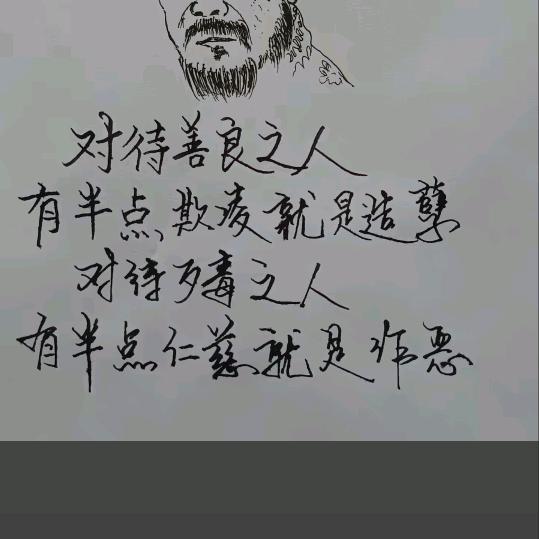 对待善良之人
有半点欺凌就是造孽
对待歹毒之人
有半点仁慈就是作恶